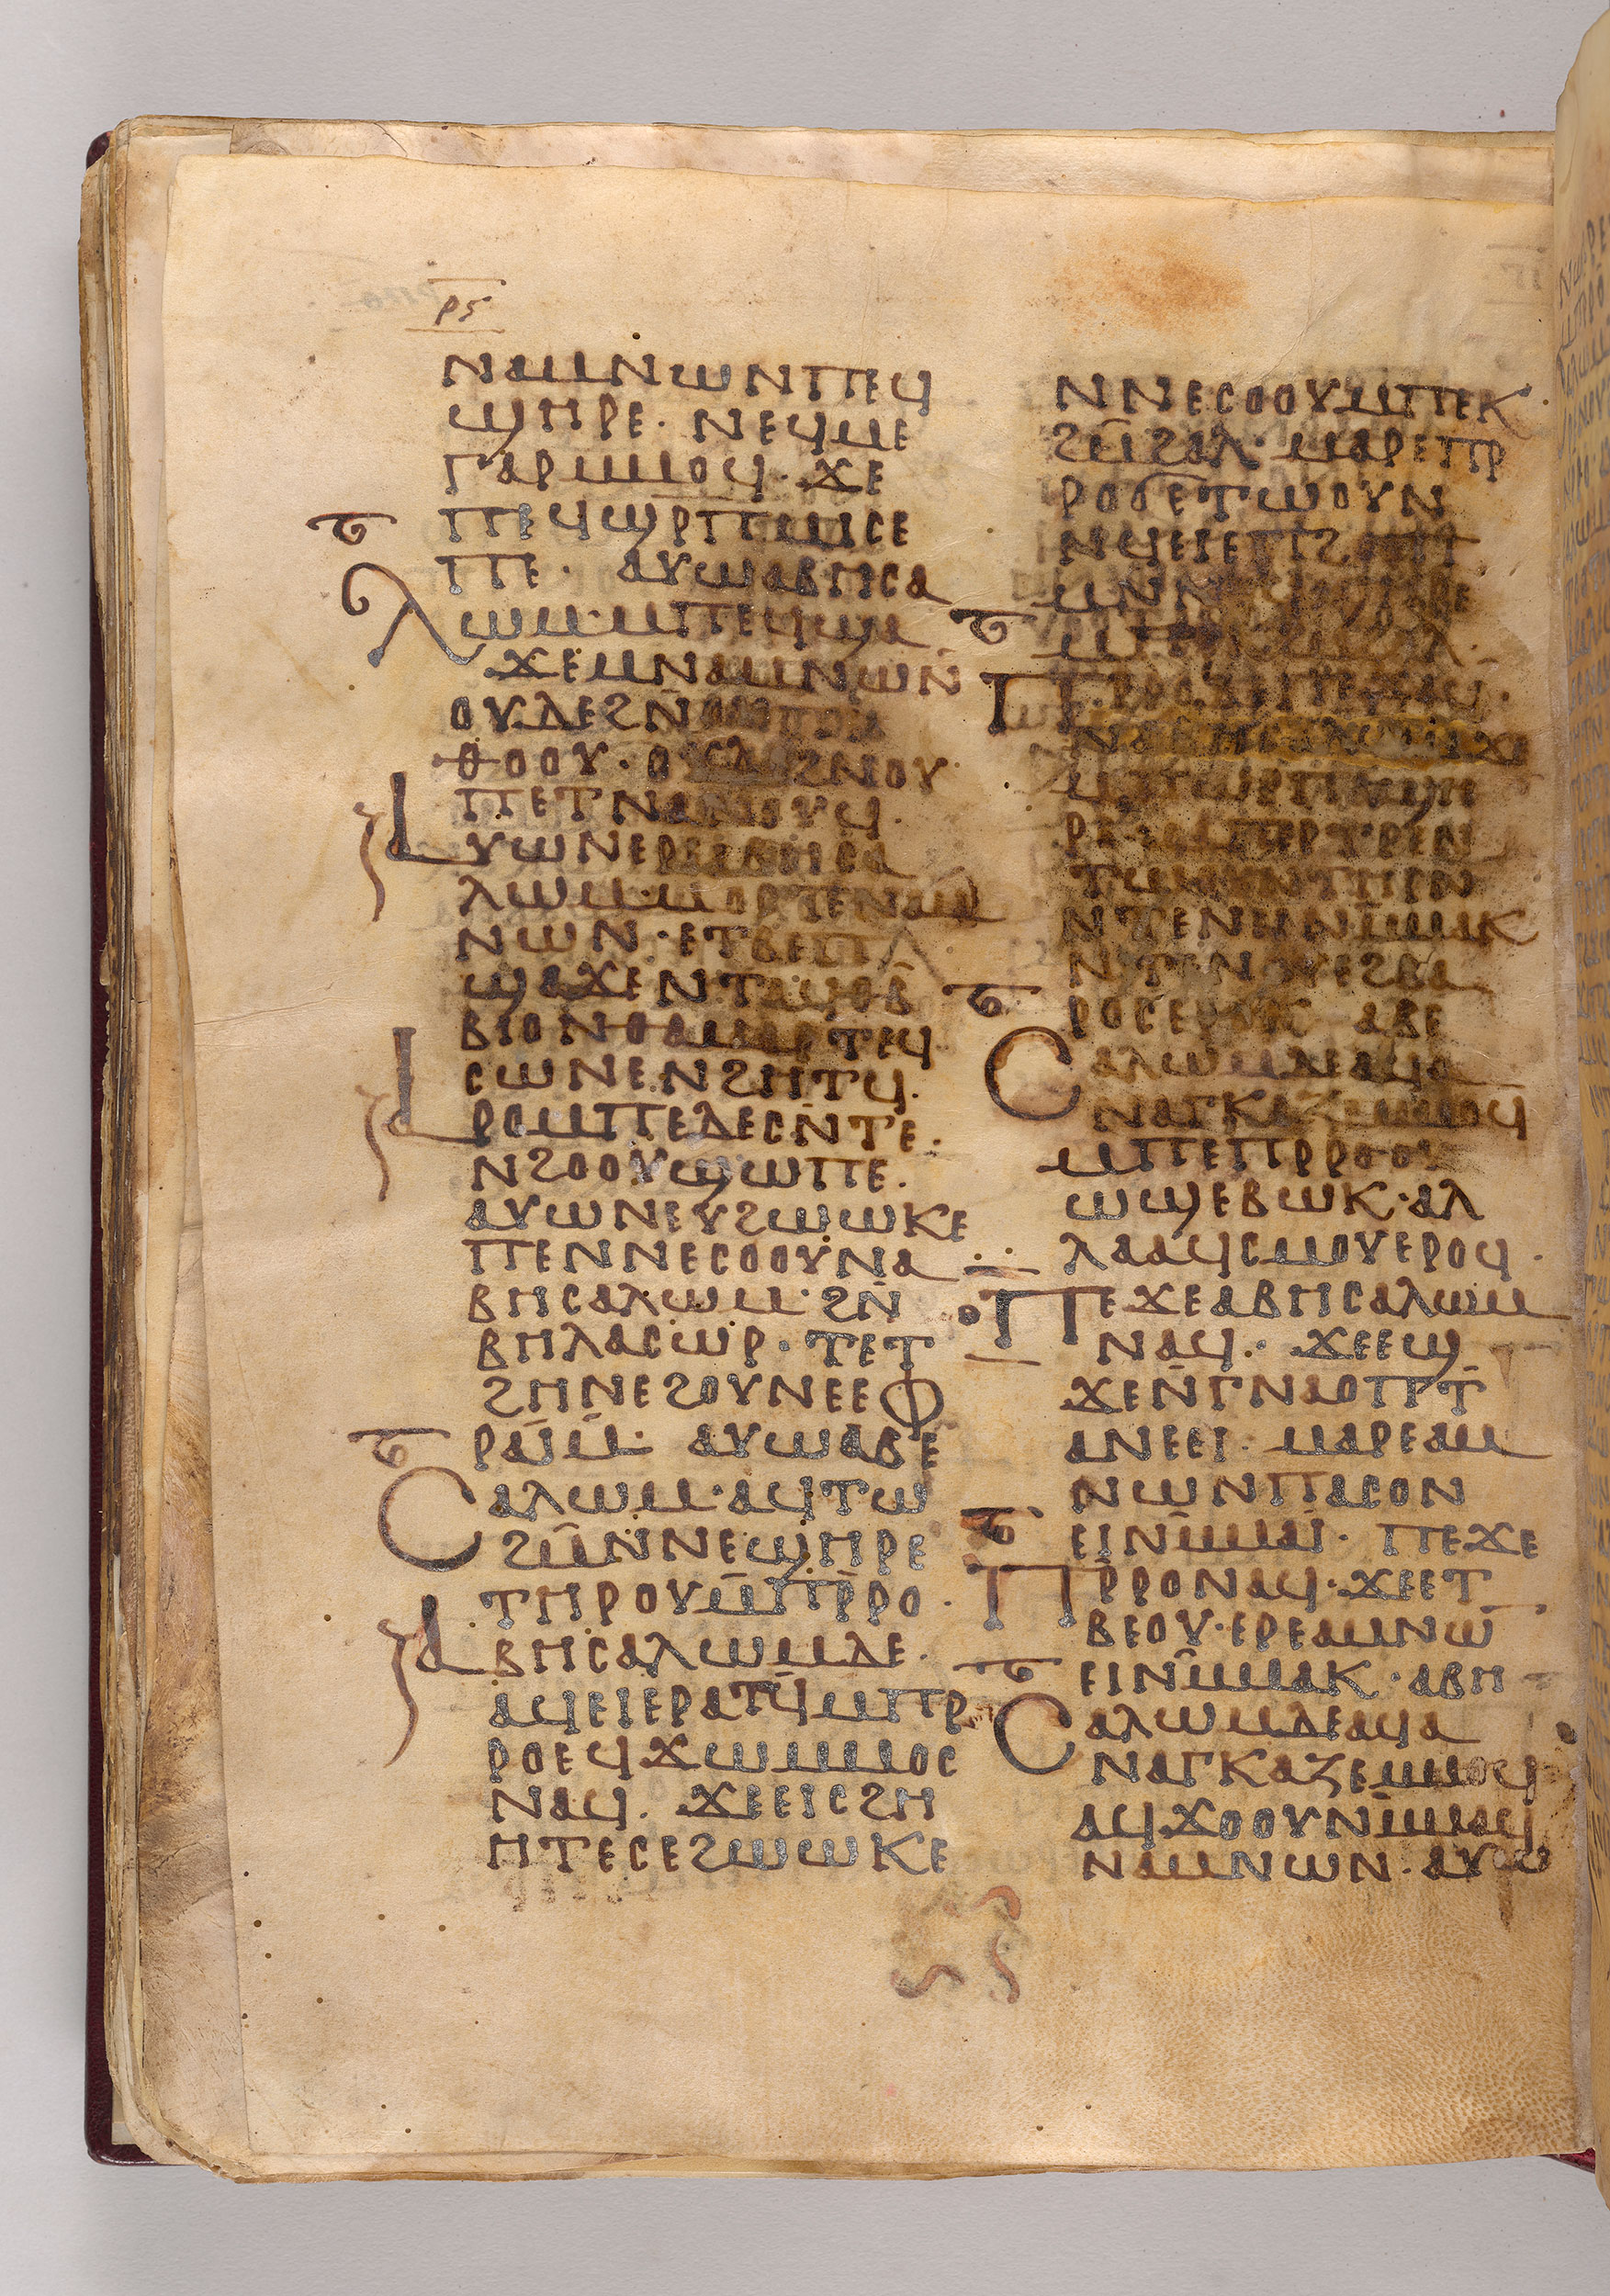 ⲣⲋ
ⲛⲁⲙⲛⲱⲛⲡⲉϥ
ϣⲏⲣⲉ· ⲛⲉϥⲙⲉ
ⲅⲁⲣⲙⲙⲟϥ· ϫⲉ
ⲡⲉϥϣⲣⲡⲙⲓⲥⲉ
ⲡⲉ· ⲁⲩⲱⲁⲃⲏⲥⲁ
ⲗⲱⲙ·ⲙⲡⲉϥϣⲁ
ϫⲉⲙⲛⲁⲙⲛⲱⲛ̄
ⲟⲩⲇⲉϩⲛ
ⲑⲟⲟⲩ·ⲟⲩⲇⲉϩⲛⲟⲩ
ⲡⲉⲧⲛⲁⲛⲟⲩϥ·
ⲁⲩⲱⲛⲉⲣⲉⲁⲃⲏⲥⲁ
ⲗⲱⲙ·ⲙⲟⲥⲧⲉⲛⲁⲙ
ⲛⲱⲛ·ⲉⲧⲃⲉⲡ
ϣⲁϫⲉⲛⲧⲁϥⲑⲃ̄
ⲃⲓⲟⲛⲑⲁⲙⲁⲣⲧⲉϥ
ⲥⲱⲛⲉⲛϩⲏⲧϥ·
ⲁⲣⲟⲙⲡⲉⲇⲉⲥⲛ̄ⲧⲉ·
ⲛϩⲟⲟⲩϣⲱⲡⲉ·
ⲁⲩⲱⲛⲉⲩϩⲱⲱⲕⲉ
ⲡⲉⲛⲛⲉⲥⲟⲟⲩⲛⲁ
ⲃⲏⲥⲁⲗⲱⲙ·ϩⲛ̄
ⲃⲏⲗⲁⲥⲱⲣ·ⲧⲉⲧ
ϩⲏⲛⲉϩⲟⲩⲛⲉⲉⲫ
ⲣⲁⲓ̈ⲙ̄· ⲁⲩⲱⲁⲃⲉ
ⲥⲁⲗⲱⲙ·ⲁϥⲧⲱ
ϩⲙ̄ⲛⲛⲉϣⲏⲣⲉ
ⲧⲏⲣⲟⲩⲙ̄ⲡⲣ̄ⲣⲟ·
ⲁⲃⲏⲥⲁⲗⲱⲙⲇⲉ·
ⲁϥⲉⲓⲉⲣⲁⲧϥ̄ⲙⲡⲣ
ⲣⲟⲉϥϫⲱⲙⲙⲟⲥ
ⲛⲁϥ· ϫⲉⲉⲓⲥϩⲏ
ⲏⲧⲉⲥⲉϩⲱⲱⲕⲉ
ⲛⲛⲉⲥⲟⲟⲩⲙⲡⲉⲕ
ϩⲙ̄ϩⲁⲗ· ⲙⲁⲣⲉⲡⲣ
ⲣⲟϭⲉⲧⲱⲟⲩⲛ
ⲙⲛⲛ
ⲡⲣⲣⲟⲇⲉⲡⲉϫⲁϥ·
ⲛⲁⲃⲏⲥⲁⲗⲱⲙϫⲉ
ⲙⲡⲱⲣⲡⲁϣⲏ
ⲣⲉ·ⲙⲡⲉⲣⲧⲣⲉⲛ
ⲧⲱⲟⲩⲛⲧⲏⲣⲛ
ⲛⲧⲉⲛⲉⲓⲛⲙ̄ⲙⲁⲕ
ⲛⲧⲉⲛⲟⲩⲉϩⲃⲁ
ⲣⲟⲥⲉⲣⲟⲕ ⲁⲃⲉ
ⲥⲁⲗⲱⲙⲇⲉⲁϥⲁ
ⲛⲁⲅⲕⲁⲍⲉⲙⲙⲟϥ
ⲙⲡⲉⲡⲣⲣⲟⲟⲩ
ⲱϣⲉⲃⲱⲕ·ⲁⲗ
ⲗⲁⲁϥⲥⲙⲟⲩⲉⲣⲟϥ·
ⲡⲉϫⲉⲁⲃⲏⲥⲁⲗⲱⲙ
ⲛⲁϥ· ϫⲉⲉϣ
ϫⲉⲛ̄ⲅⲛⲁⲟⲡⲧ̄
ⲁⲛⲉⲉⲓ· ⲙⲁⲣⲉⲁⲙ
ⲛⲱⲛⲡⲁⲥⲟⲛ
ⲉⲓⲛⲙ̄ⲙⲁⲓ̈· ⲡⲉϫⲉ
ⲡⲣ̄ⲣⲟⲛⲁϥ·ϫⲉⲉⲧ
ⲃⲉⲟⲩ·ⲉⲣⲉⲁⲙⲛⲱ̄
ⲉⲓⲛⲙ̄ⲙⲁⲕ·ⲁⲃⲏ
ⲥⲁⲗⲱⲙⲇⲉⲁϥⲁ
ⲛⲁⲅⲕⲁⲍⲉⲙⲙⲟϥ
ⲁϥϫⲟⲟⲩⲛⲙ̄ⲙⲁϥ
ⲛⲁⲙⲛⲱⲛ·ⲁⲩⲱ